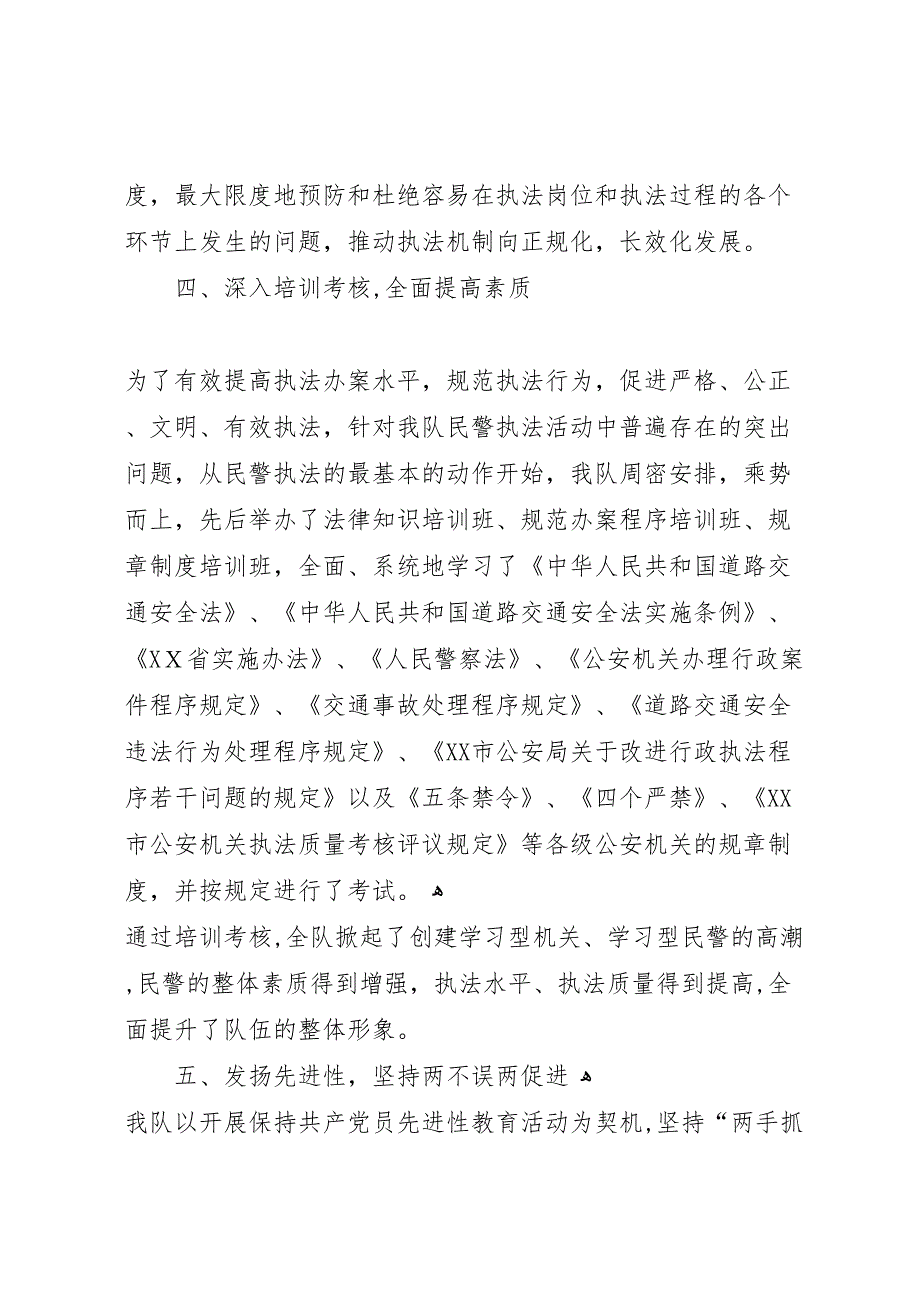 度，最大限度地预防和杜绝容易在执法岗位和执法过程的各个
环节上发生的问题，推动执法机制向正规化，长效化发展。
四、深入培训考核,全面提高素质
为了有效提高执法办案水平，规范执法行为，促进严格、公正
、文明、有效执法，针对我队民警执法活动中普遍存在的突出
问题，从民警执法的最基本的动作开始，我队周密安排，乘势
而上，先后举办了法律知识培训班、规范办案程序培训班、规
章制度培训班，全面、系统地学习了《中华人民共和国道路交
通安全法》、《中华人民共和国道路交通安全法实施条例》、
《XX省实施办法》、《人民警察法》、《公安机关办理行政案
件程序规定》、《交通事故处理程序规定》、《道路交通安全
违法行为处理程序规定》、《XX市公安局关于改进行政执法程
序若干问题的规定》以及《五条禁令》、《四个严禁》、《XX
市公安机关执法质量考核评议规定》等各级公安机关的规章制
度，并按规定进行了考试。 ﻫ
通过培训考核,全队掀起了创建学习型机关、学习型民警的高潮
,民警的整体素质得到增强，执法水平、执法质量得到提高,全
面提升了队伍的整体形象。
五、发扬先进性，坚持两不误两促进 ﻫ
我队以开展保持共产党员先进性教育活动为契机,坚持“两手抓